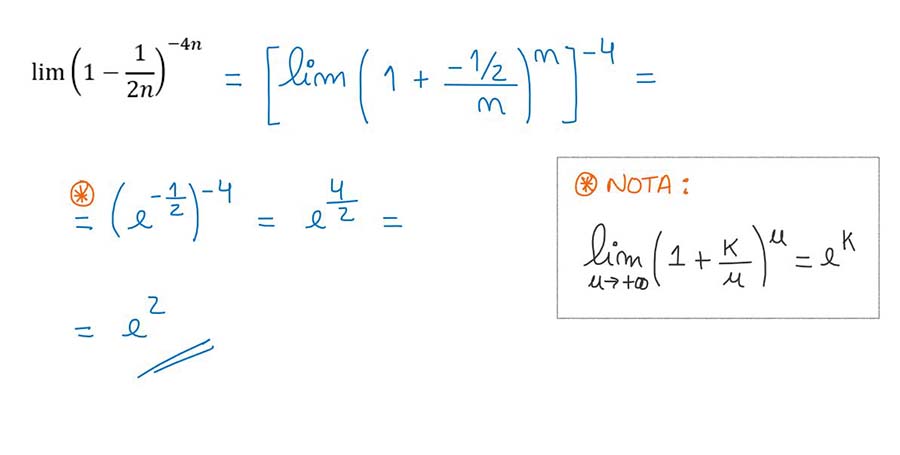 lim(1 − 1/2n)^−4n = [lim(1 + −1/2/n)^n]^−4 =
⊛ = (e^−1/2)^−4 = e^4/2 =
= e^2
⊛ NOTA:
lim u→+∞ (1 + K/u)^u = e^K